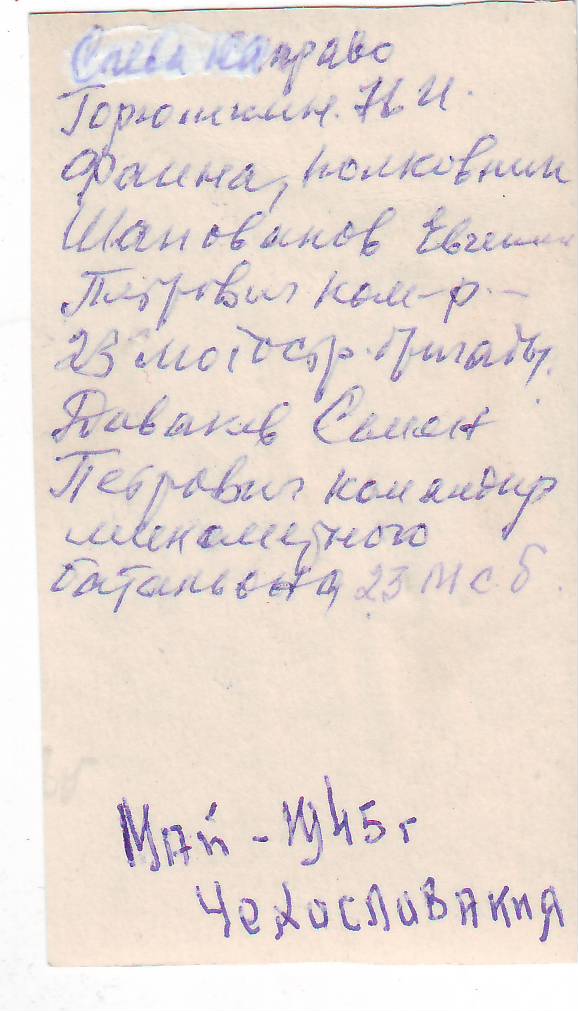 Слева направо
Горюшкин. Н И.
Фаина, полковник
Шаповалов Евгений
Петрович ком-р-
23 мотостр. бригады.
Новаков Семен
Петрович командир
минометного
батальона 23 м с б.
Май - 1945 г
Чехославакия